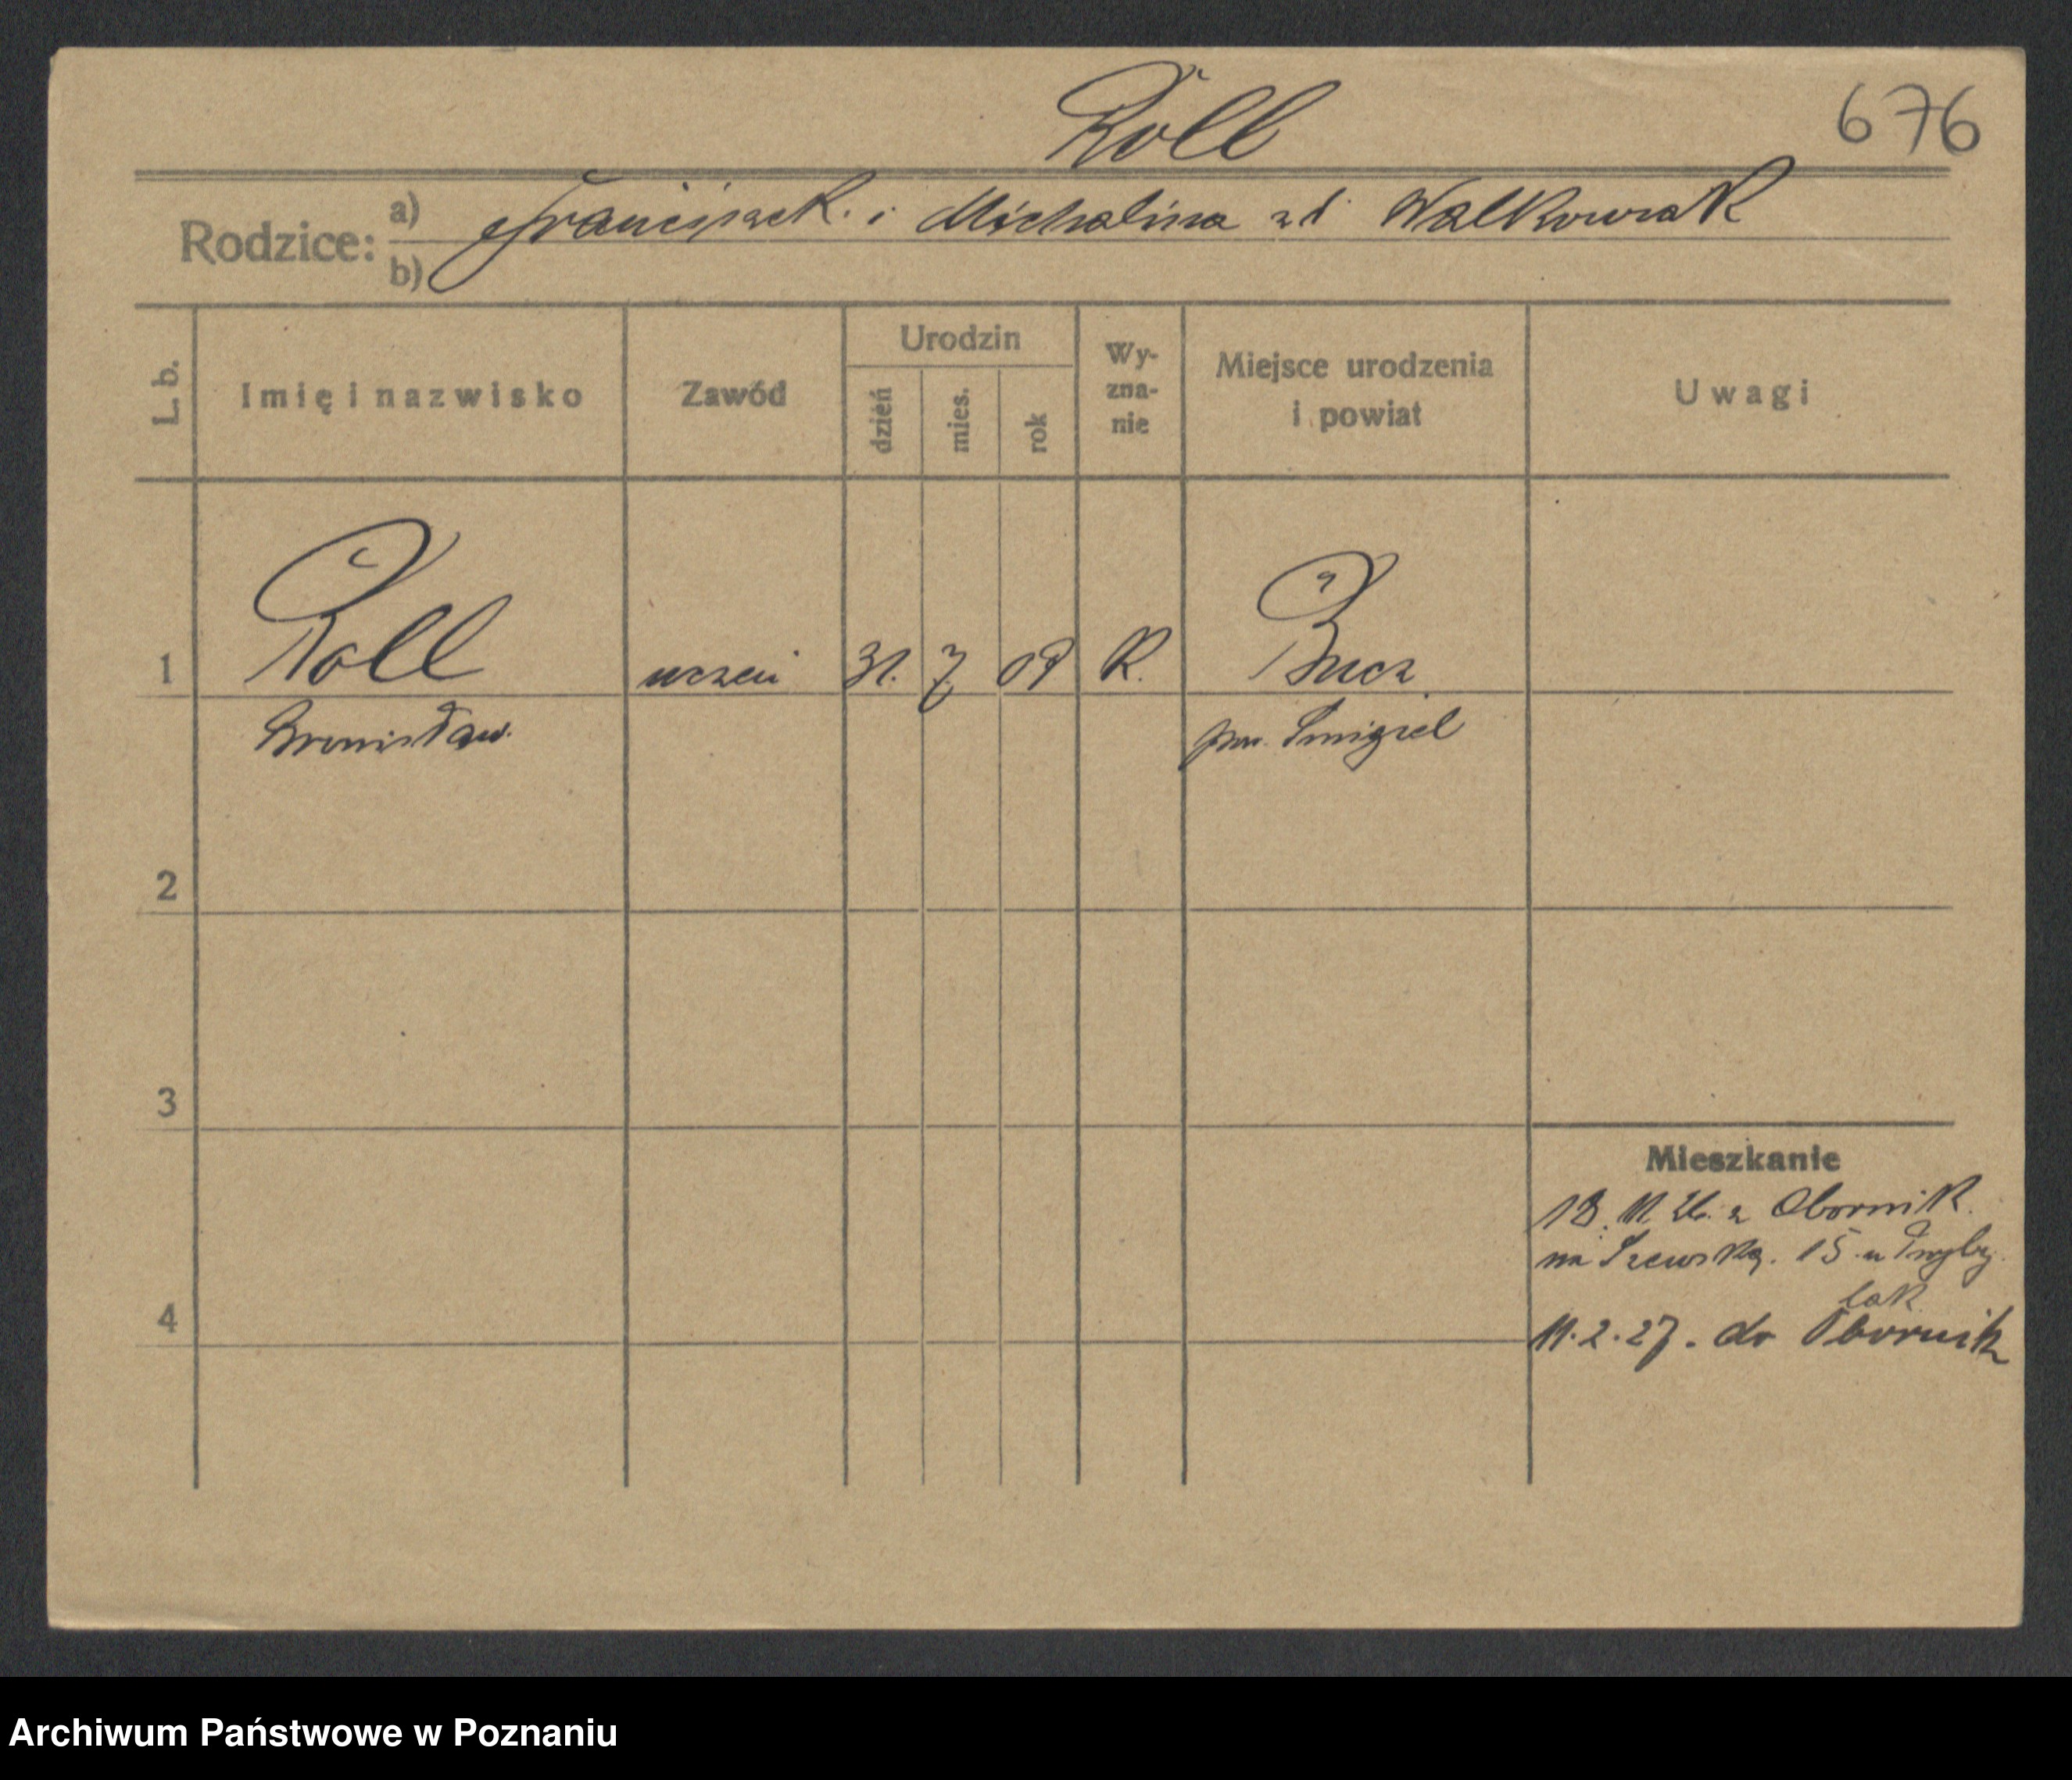 Roll
676
Rodzice: a) Franciszek i Michalina zd Walkowiak
b)
L. b.
Imię i nazwisko
Zawód
Urodzin
dzień
mies.
rok
Wy-
zna-
nie
Miejsce urodzenia
i powiat
Uwagi
1 Roll uczeń 31. 7. 09 R. Bucz
Bronisław. pow. Śmigiel
2
3
Mieszkanie
18. 11. 26. z Obornik.
na Szewską. 15 u
4
11. 2. 27. do Obornik
Archiwum Państwowe w Poznaniu